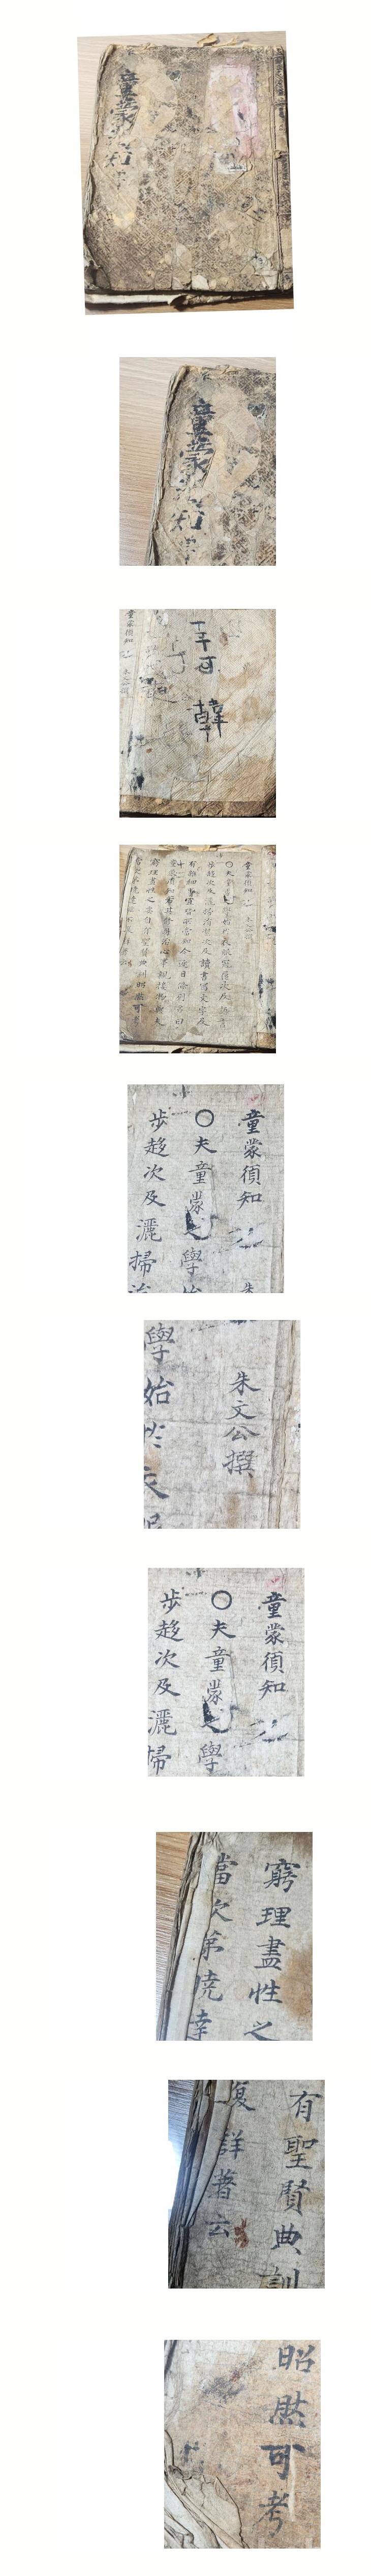 童蒙
知
童蒙
知
童蒙須知
可
韓
童蒙須知
○夫童蒙之學始於衣服冠屨次及語言
步趍次及灑掃涓潔次及讀書寫文字及
有雜細事宜皆所當知今逐目條列名曰
童蒙須知若其修身治心事親接物與夫
窮理盡性之要自有聖賢典訓昭然可考
童蒙須知
○夫童蒙之學
步趍次及灑掃
朱文公撰
學始於衣服
童蒙須知
○夫童蒙之學
步趍次及灑掃
窮理盡性之
當次第曉
有聖賢典訓
復詳著云
昭然可考